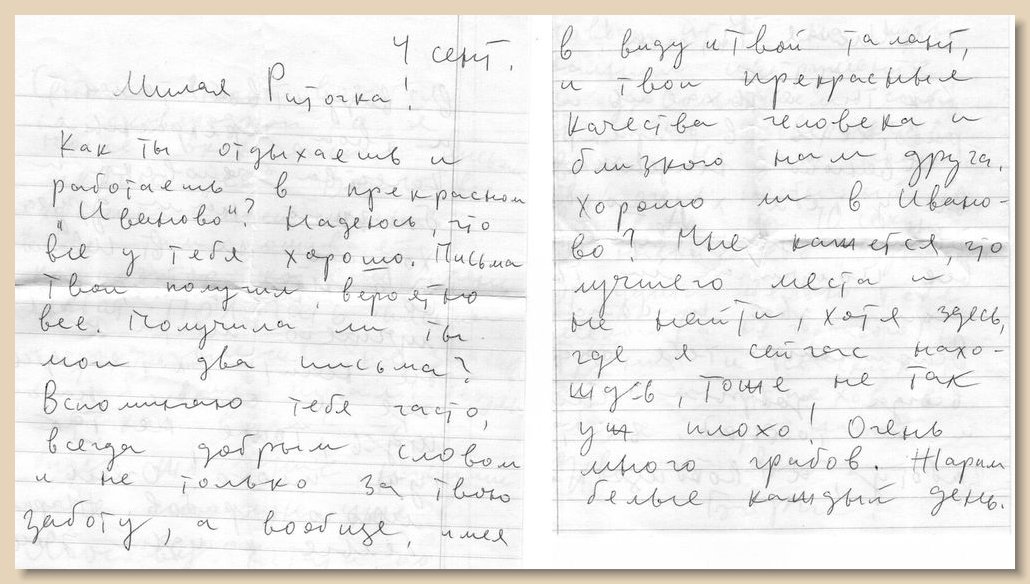 4 сент.
Милая Риточка!
Как ты отдыхаешь и
работаешь в прекрасном
"Иваново"? Надеюсь, что
все у тебя хорошо. Письма
твои получил, вероятно
все. Получила ли ты
мои два письма?
Вспоминаю тебя часто,
всегда добрым словом
и не только за твою
заботу, а вообще, имея
в виду и твой талант,
и твои прекрасные
качества человека и
близкого нам друга.
Хорошо ли в Ивано-
во? Мне кажется, что
лучшего места и
не найти, хотя здесь,
где я сейчас нахо-
жусь, тоже не так
уж плохо! Очень
много грибов. Жарим
белые каждый день.